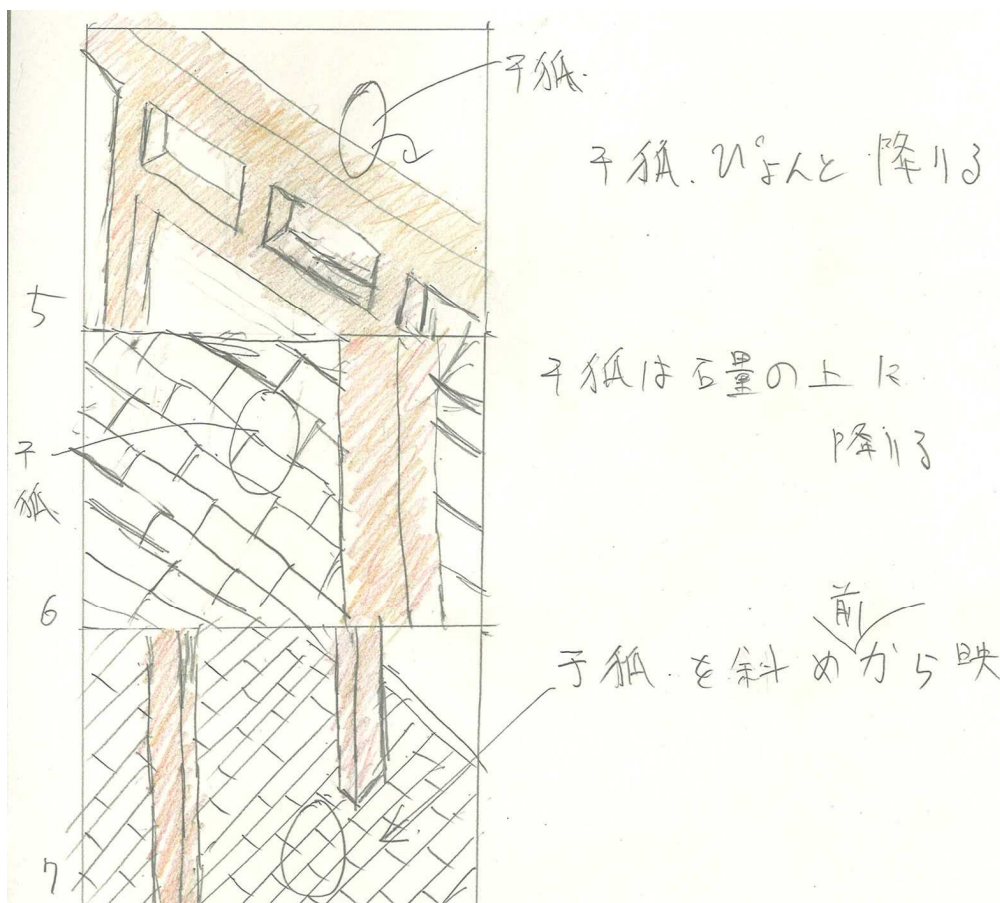 子狐
子狐、ぴょんと降りる
5
子狐は石畳の上に
降りる
子
狐
6
前
子狐を斜めから映
7